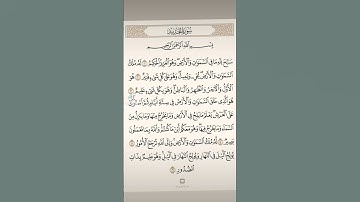 سُورَةُ الحَدِيدِ
بِسْمِ اللَّهِ الرَّحْمَٰنِ الرَّحِيمِ
سَبَّحَ لِلَّهِ مَا فِي السَّمَٰوَٰتِ وَالْأَرْضِ وَهُوَ الْعَزِيزُ الْحَكِيمُ ١ لَهُ مُلْكُ
السَّمَٰوَٰتِ وَالْأَرْضِ يُحْيِي وَيُمِيتُ وَهُوَ عَلَىٰ كُلِّ شَيْءٍ قَدِيرٌ ٢ هُوَ
الْأَوَّلُ وَالْآخِرُ وَالظَّاهِرُ وَالْبَاطِنُ وَهُوَ بِكُلِّ شَيْءٍ عَلِيمٌ ٣
هُوَ الَّذِي خَلَقَ السَّمَٰوَٰتِ وَالْأَرْضَ فِي سِتَّةِ أَيَّامٍ ثُمَّ اسْتَوَىٰ
عَلَى الْعَرْشِ يَعْلَمُ مَا يَلِجُ فِي الْأَرْضِ وَمَا يَخْرُجُ مِنْهَا وَمَا يَنزِلُ مِنَ
السَّمَاءِ وَمَا يَعْرُجُ فِيهَا وَهُوَ مَعَكُمْ أَيْنَ مَا كُنتُمْ وَاللَّهُ بِمَا تَعْمَلُونَ
بَصِيرٌ ٤ لَّهُ مُلْكُ السَّمَٰوَٰتِ وَالْأَرْضِ وَإِلَى اللَّهِ تُرْجَعُ الْأُمُورُ ٥
يُولِجُ اللَّيْلَ فِي النَّهَارِ وَيُولِجُ النَّهَارَ فِي اللَّيْلِ وَهُوَ عَلِيمٌ بِذَاتِ
الصُّدُورِ ٦